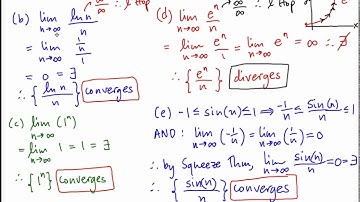 ∞/∞ ∴ l'Hop
(b) lim n→∞ ln n / n
= lim n→∞ 1/n / 1
= 0 = ∃
∴ { ln n / n } converges
(c) lim n→∞ (1ⁿ)
= lim n→∞ 1 = 1 = ∃
∴ {1ⁿ} converges
(d) lim n→∞ eⁿ / n
= lim n→∞ eⁿ / 1 = lim n→∞ eⁿ = ∞ ∴ ∄
∴ { eⁿ / n } diverges
(e) -1 ≤ sin(n) ≤ 1 ⇒ -1/n ≤ sin(n)/n ≤ 1
AND: lim n→∞ (-1/n) = lim n→∞ (1/n) = 0
∴ by Squeeze Thm, lim n→∞ sin(n)/n = 0 = ∃
∴ { sin(n)/n } converges